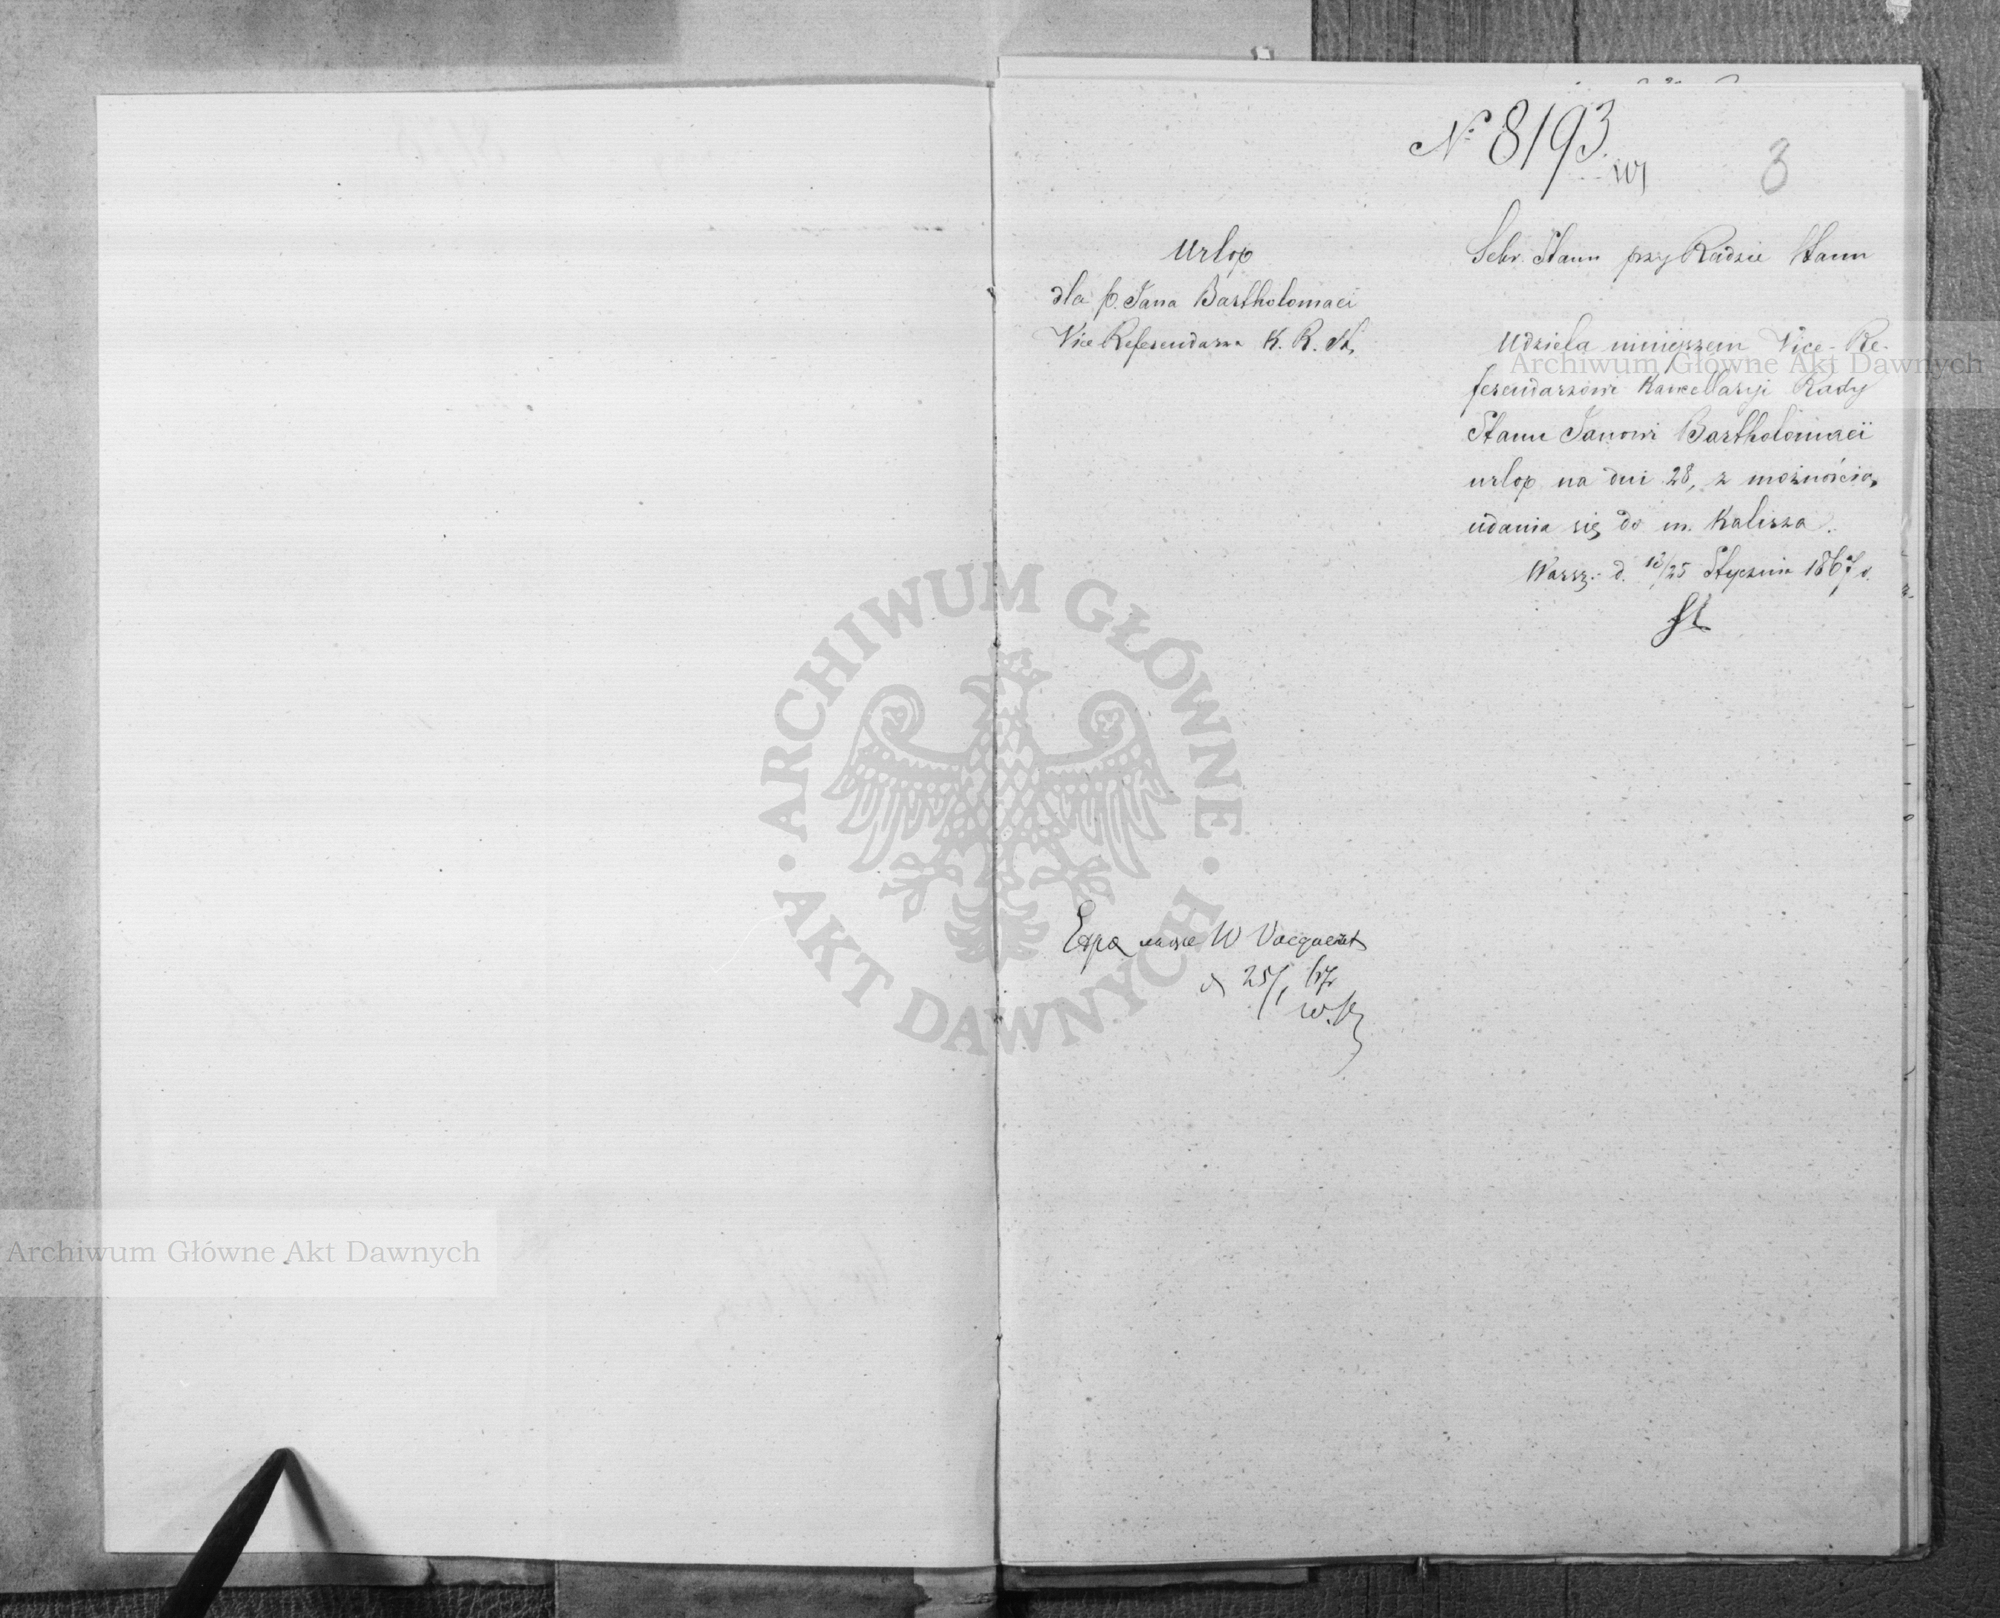 No 8193
3
Urlop
dla p. Jana Bartholomaei
Vice Referendarza K. R. St.
Sekr. Stanu przy Radzie Stanu
Udziela niniejszem Vice-Re-
ferendarzowi Kancellaryi Rady
Stanu Janowi Bartholomaei
urlop na dni 28, z możnością
udania się do m. Kalisza.
Warsz. d. 13/25 Stycznia 1867 r.
W
d 25/1 67
ARCHIWUM GŁÓWNE
AKT DAWNYCH
Archiwum Główne Akt Dawnych
Archiwum Główne Akt Dawnych